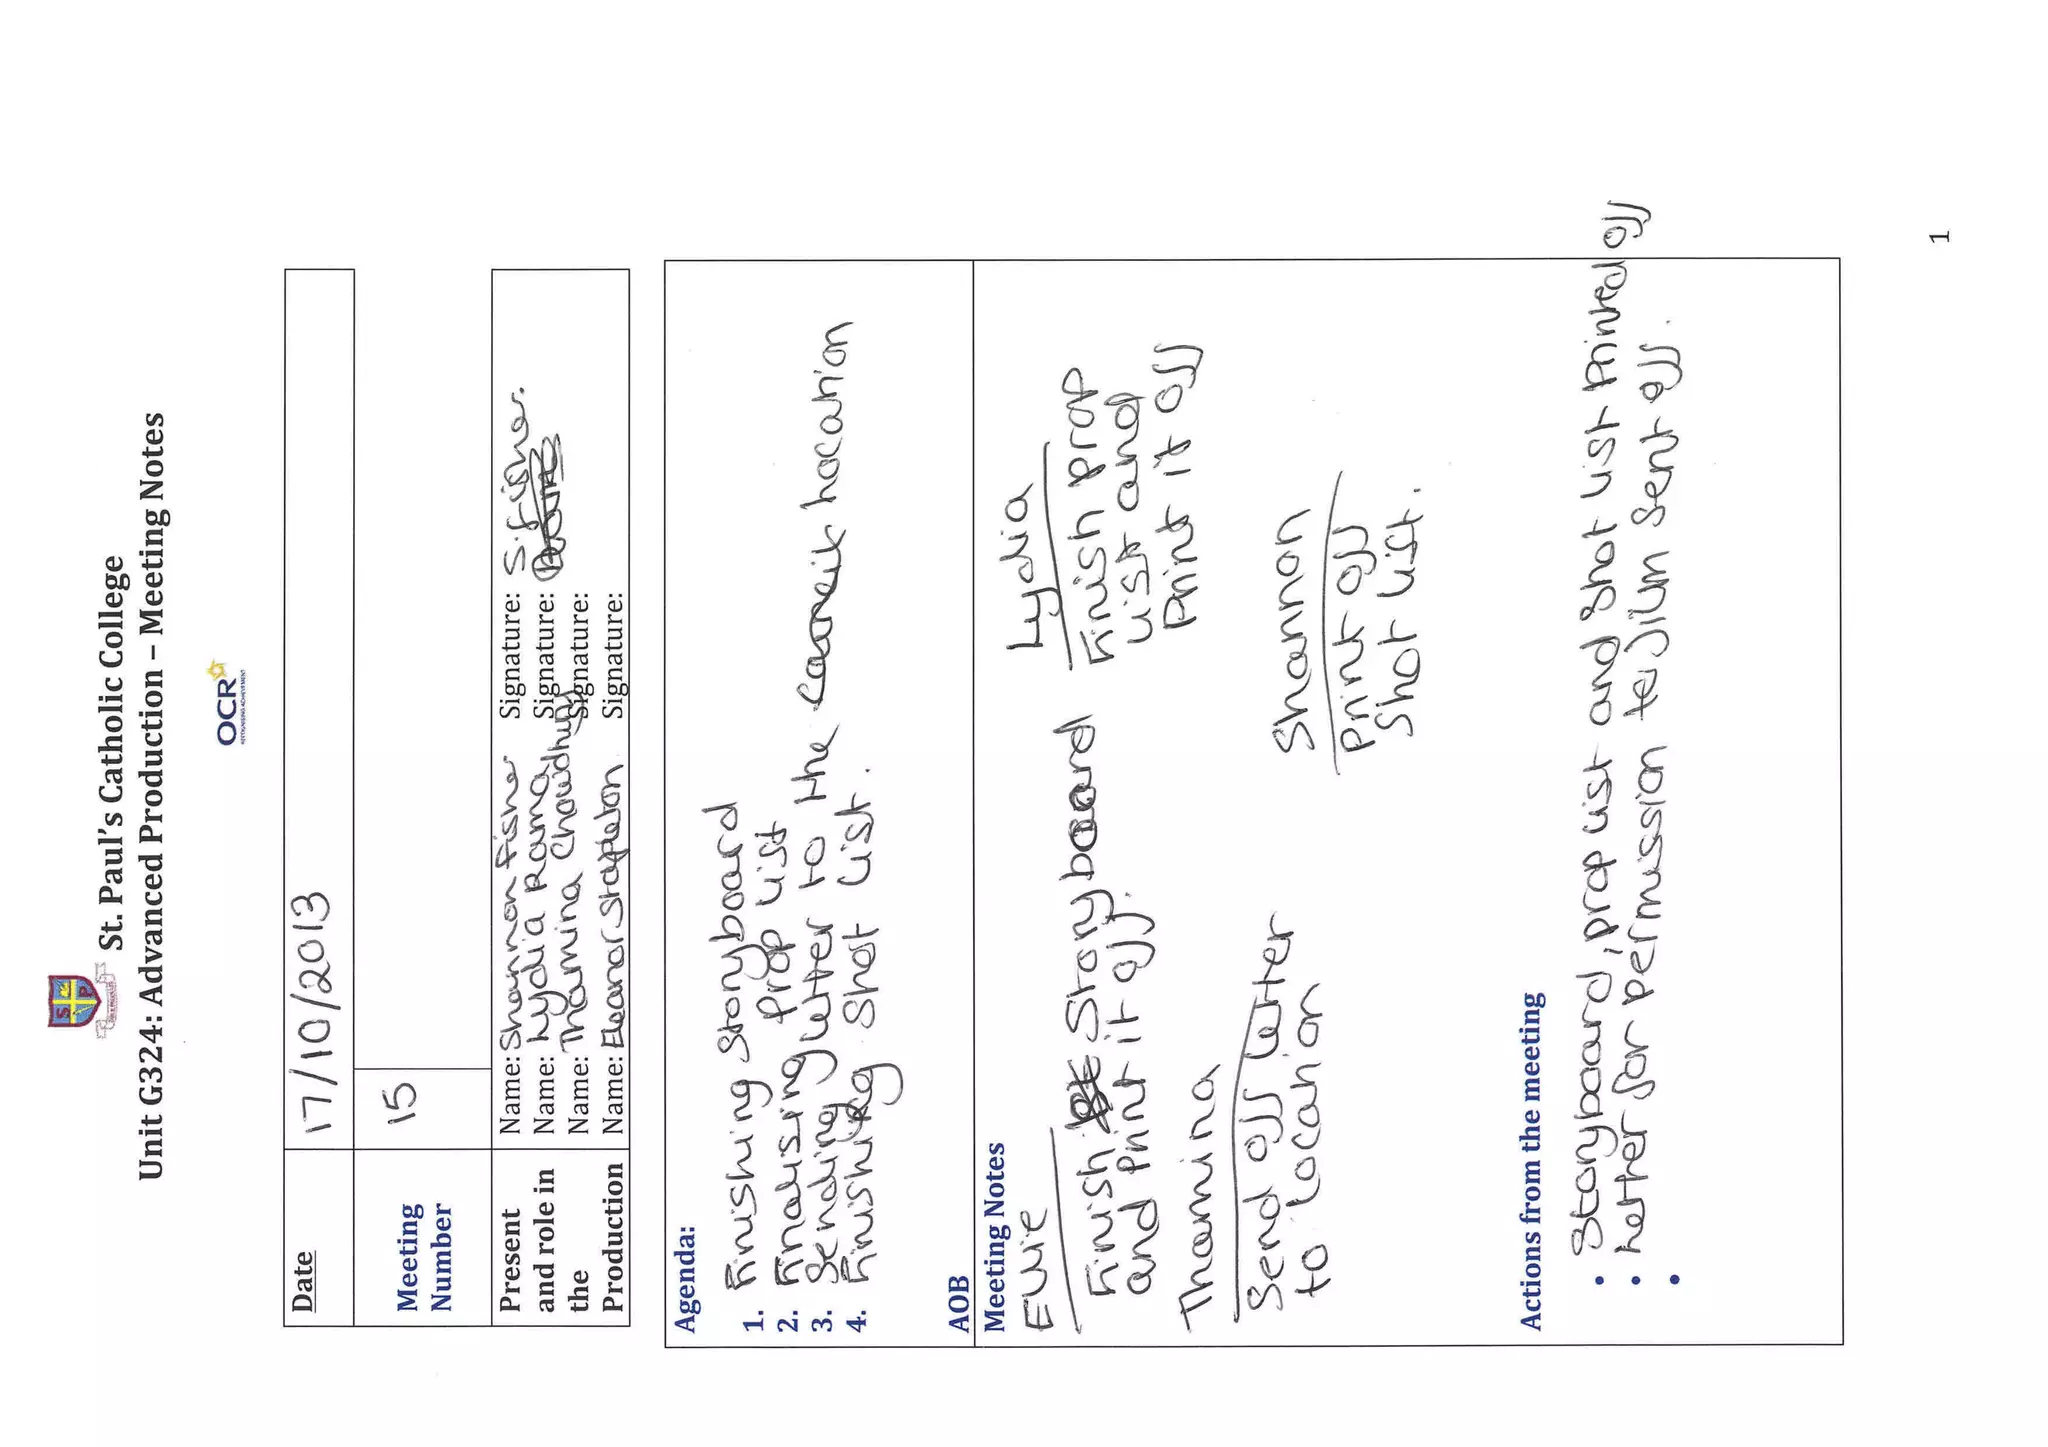 St. Paul's Catholic College
Unit G324: Advanced Production – Meeting Notes
OCR
RECOGNISING ACHIEVEMENT
Date 17/10/2013
Meeting Number 15
Present and role in the Production
Name: Shannon Fisher Signature: S.Fisher.
Name: Lydia Rama Signature:
Name: Thamina Choudhury Signature:
Name: Eleanor Stapleton Signature:
Agenda:
1. Finishing Storyboard
2. Finalising Prop List
3. Sending letter to the location
4. Finishing Shot List.
AOB
Meeting Notes
Ellie
Finish Storyboard
and Print it off.
Lydia
Finish prop
List and
Print it off
Thamina
Send off letter
to Location
Shannon
Print off
Shot List.
Actions from the meeting
• Storyboard, prop List and Shot List Printed off
• Letter for permission to film Sent off.
•
1